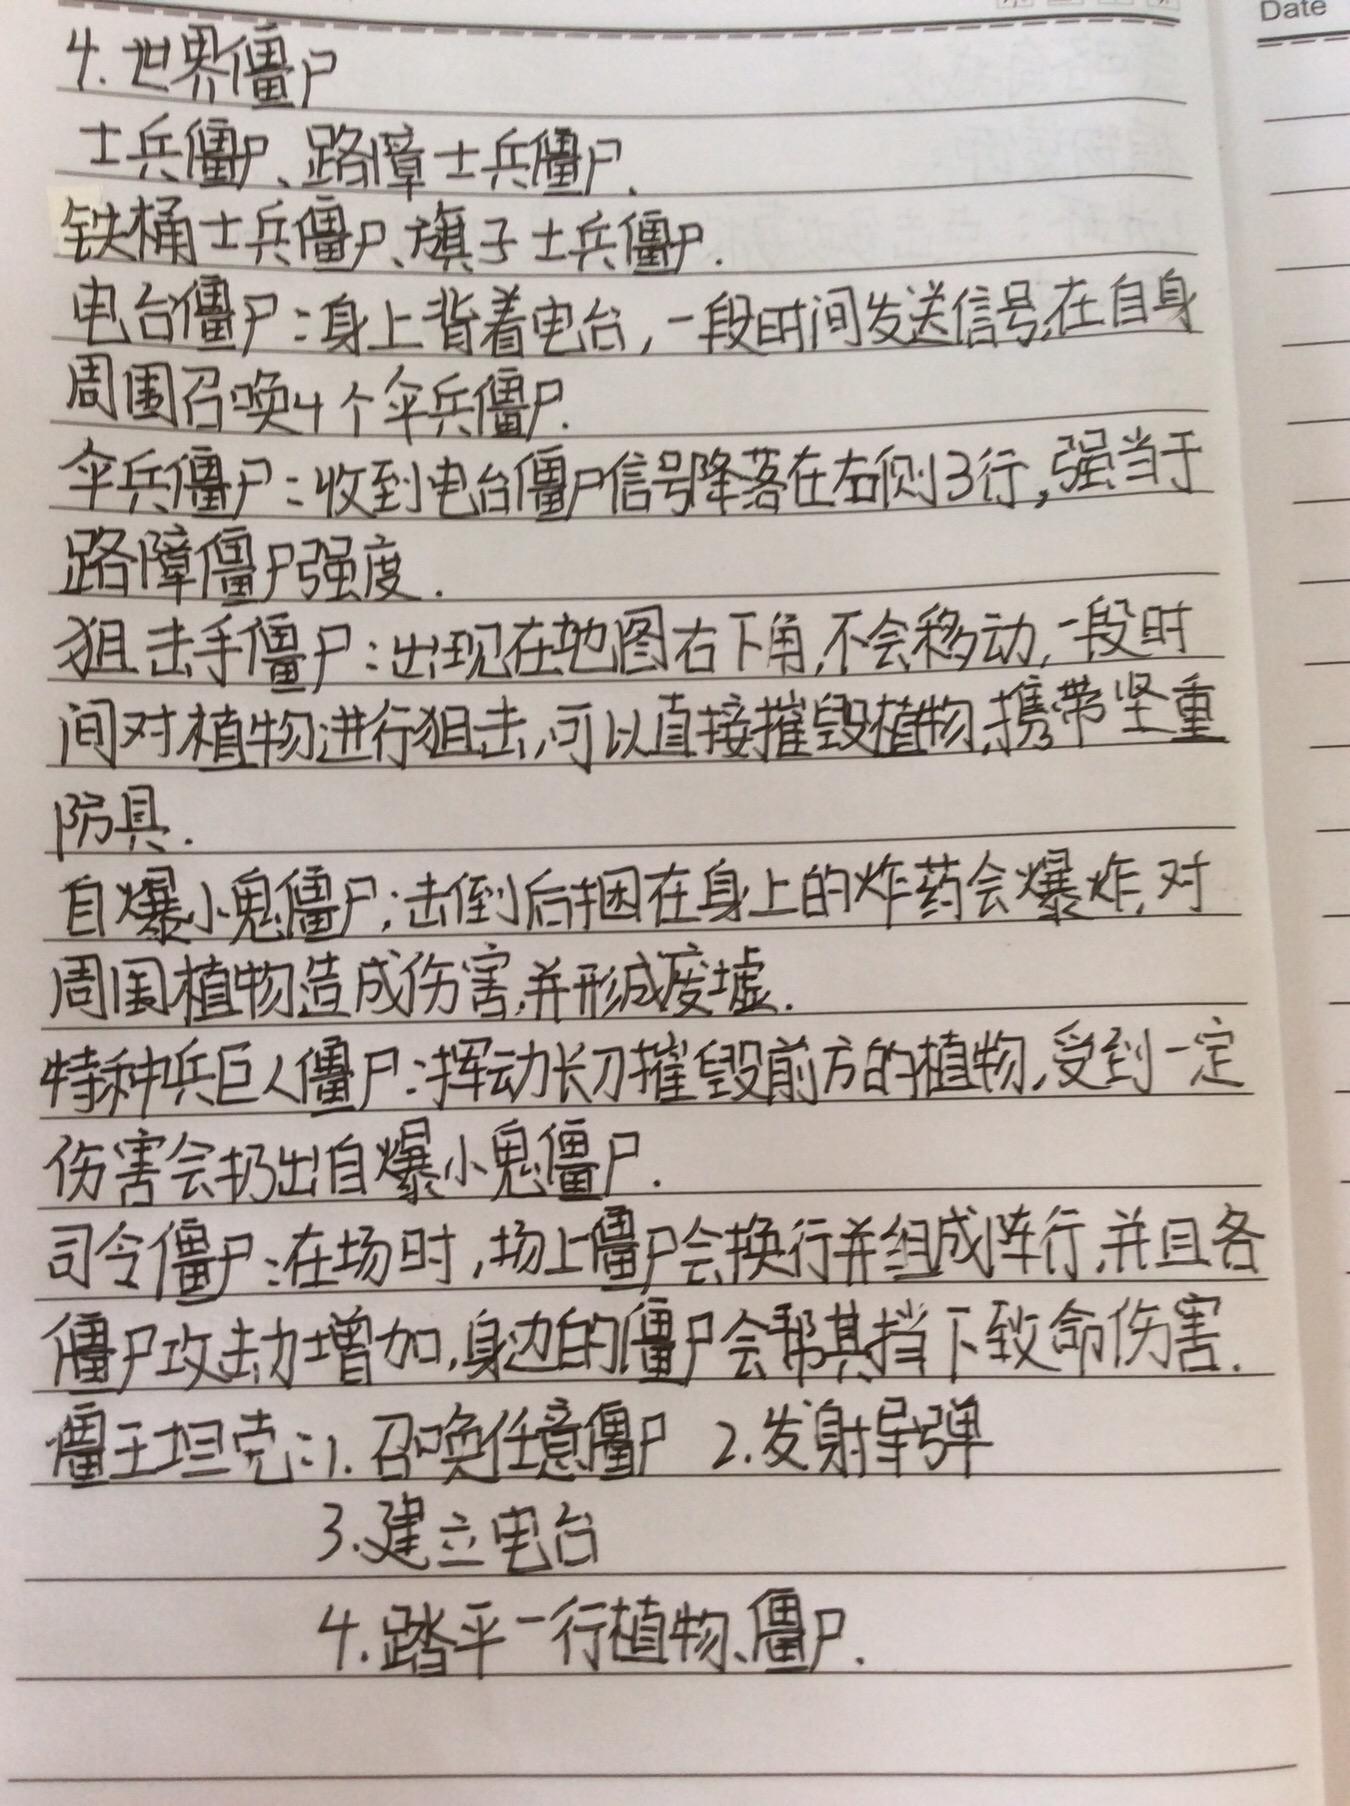 Date
4.世界僵尸
士兵僵尸、路障士兵僵尸、
铁桶士兵僵尸、旗子士兵僵尸.
电台僵尸:身上背着电台,一段时间发送信号,在自身
周围召唤4个伞兵僵尸.
伞兵僵尸:收到电台僵尸信号降落在右侧3行,强当于
路障僵尸强度.
狙击手僵尸:出现在地图右下角,不会移动,一段时
间对植物进行狙击,可以直接摧毁植物,携带坚重
防具.
自爆小鬼僵尸:击倒后捆在身上的炸药会爆炸,对
周围植物造成伤害,并形成废墟.
特种兵巨人僵尸:挥动长刀摧毁前方的植物,受到一定
伤害会扔出自爆小鬼僵尸.
司令僵尸:在场时,场上僵尸会换行并组成阵行,并且各
僵尸攻击力增加,身边的僵尸会帮其挡下致命伤害.
僵王坦克:1.召唤任意僵尸 2.发射导弹
3.建立电台
4.踏平一行植物、僵尸.